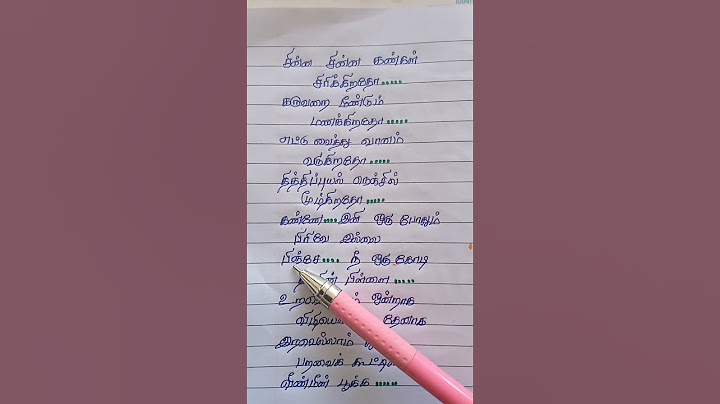 சின்ன சின்ன கண்கள்
சிரிக்கிறதோ.....
கருவறை மீண்டும்
மணக்கிறதோ.....
எட்டு வைத்து வானம்
வருகிறதோ.....
தித்திப்புயல் நெஞ்சில்
மூழ்கிறதோ.....
கண்ணே.... இனி ஒரு போதும்
பிரிவே இல்லை
பிஞ்சே.... நீ ஒரு கோடி
பிள்ளை.....
ஒன்றாக
தேனாக
இரவெல்லாம்
பறவைக்
விண்மீன் பூக்க......